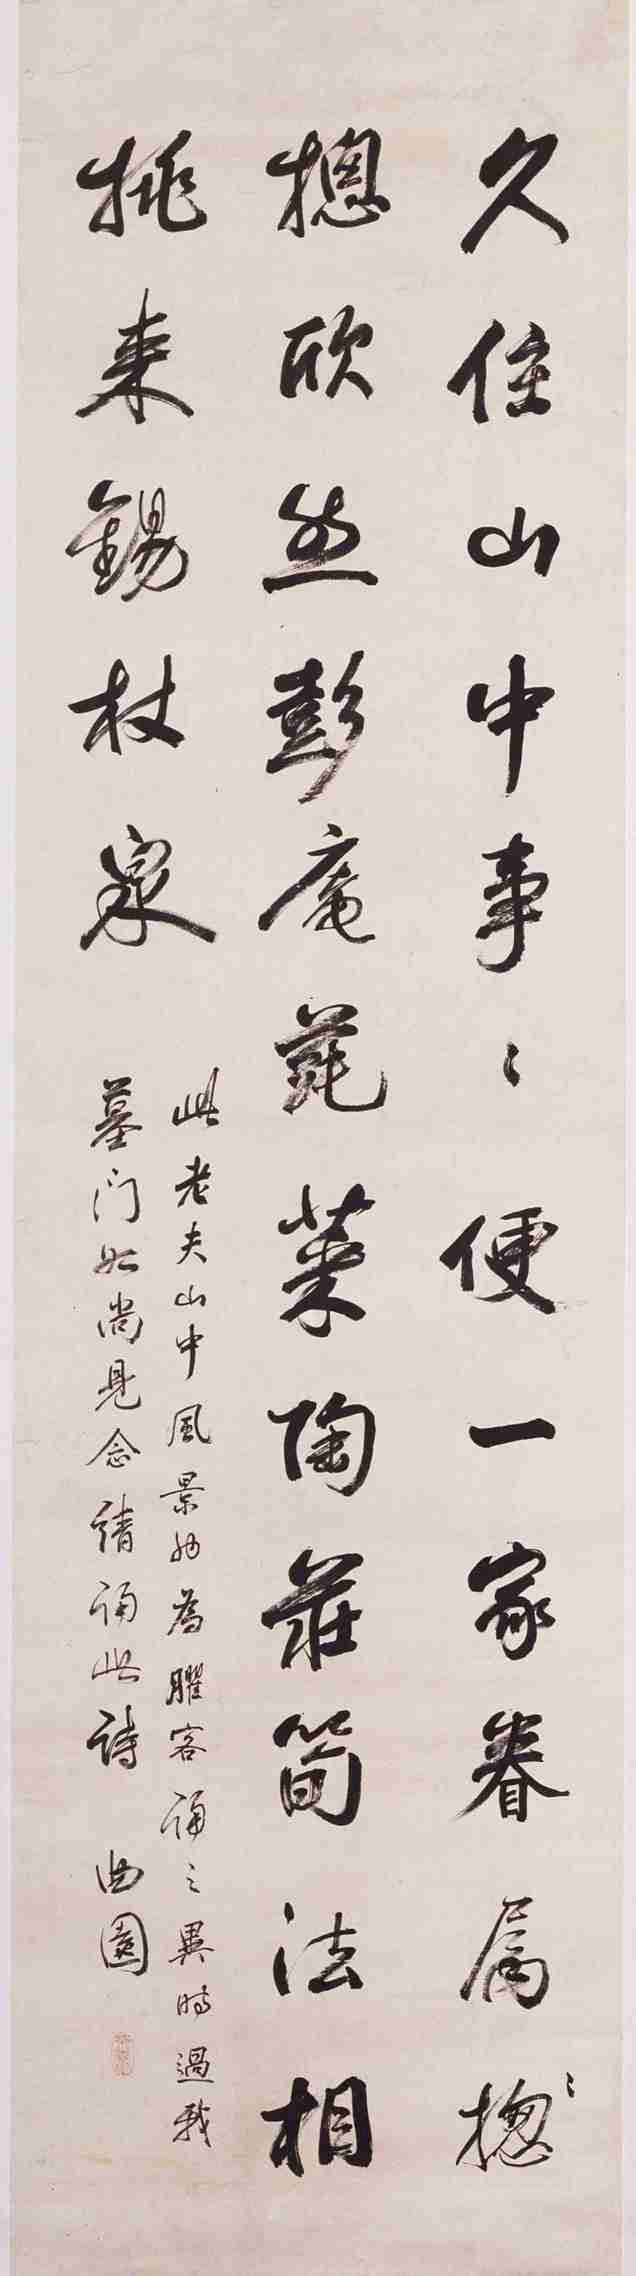 久住山中事〻便一家眷屬摠〻
摠欣然彭庵蒓菜陶莊筍法相
挑來錫杖泉
此老夫山中風景也為臞客誦之異時過我
墓門如尚見念請誦此詩 曲園